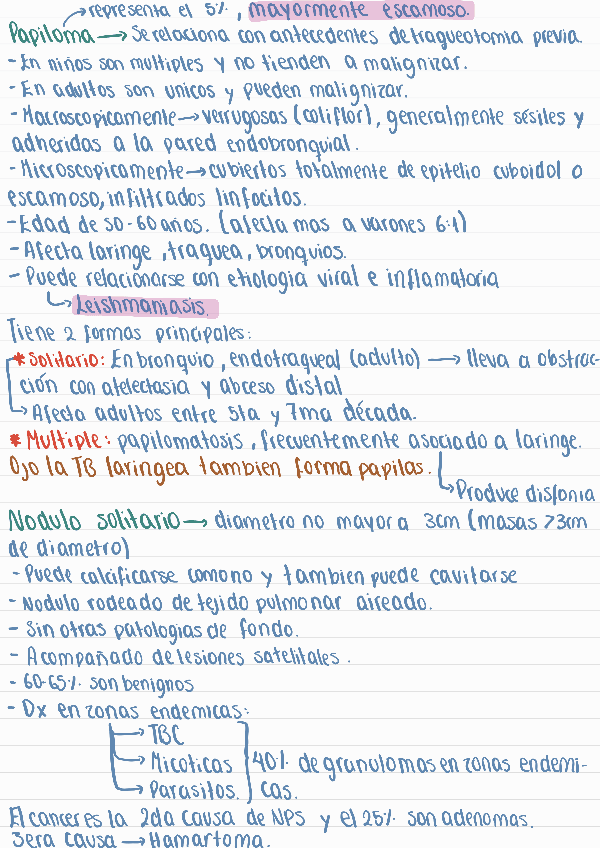 → representa el 5%, mayormente escamoso.
Papiloma → Se relaciona con antecedentes de tragueotomia previa.
- En niños son multiples y no tienden a malignizar.
- En adultos son unicos y pueden malignizar.
- Macroscopicamente → verrugosas (coliflor), generalmente sésiles y
adheridas a la pared endobronquial.
- Microscopicamente → cubiertos totalmente de epitelio cuboidal o
escamoso, infiltrados linfocitos.
- Edad de 50-60 años. (afecta mas a varones 6:1)
- Afecta laringe, traquea, bronquios.
- Puede relacionarse con etiologia viral e inflamatoria
↳ Leishmaniasis.
Tiene 2 formas principales:
* Solitario: En bronquio, endotraqueal (adulto) → lleva a obstruc-
ción con atelectasia y abceso distal
↳ Afecta adultos entre 5ta y 7ma década.
* Multiple: papilomatosis, frecuentemente asociado a laringe.
Ojo la TB laringea tambien forma papilas.
↳ Produce disfonia
Nodulo solitario → diametro no mayor a 3cm (masas >3cm
de diametro)
- Puede calcificarse comono y tambien puede cavitarse
- Nodulo rodeado de tejido pulmonar aireado.
- Sin otras patologias de fondo.
- Acompañado de lesiones satelitales.
- 60-65% son benignos
- Dx en zonas endemicas:
→ TBC
→ Micoticas 40% de granulomas en zonas endemi-
→ Parasitos. cas.
El cancer es la 2da causa de NPS y el 25% son adenomas.
3era causa → Hamartoma.